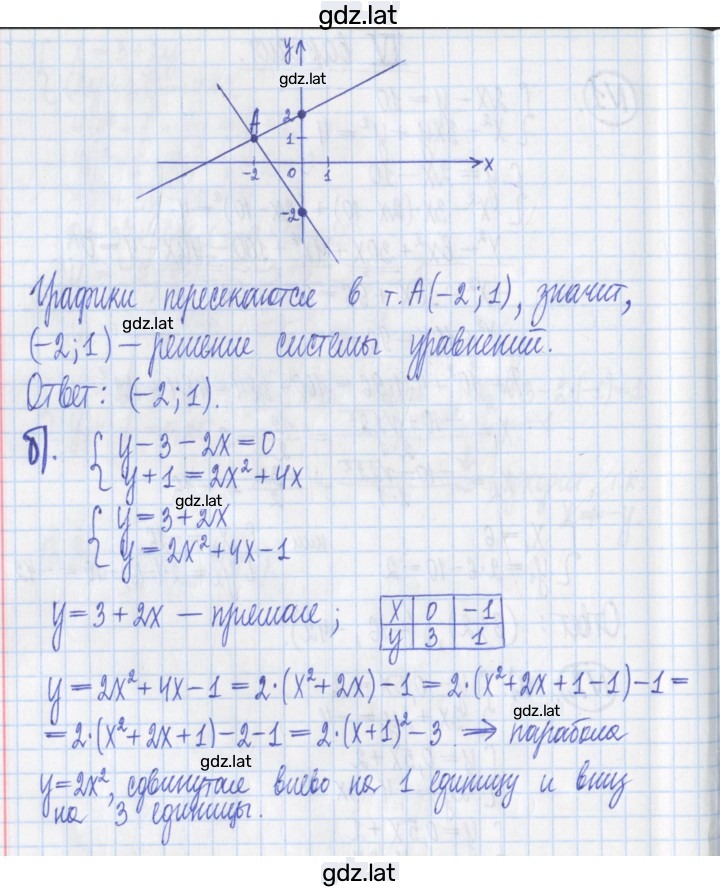 gdz.lat
y
gdz.lat
A
2
1
-2 0 1 x
-2
Графики пересекаются в т. A(-2; 1), значит,
gdz.lat
(-2; 1) — решение системы уравнений.
Ответ: (-2; 1).
б). { y - 3 - 2x = 0
y + 1 = 2x² + 4x
gdz.lat
{ y = 3 + 2x
y = 2x² + 4x - 1
y = 3 + 2x — прямая;
x 0 -1
y 3 1
y = 2x² + 4x - 1 = 2·(x² + 2x) - 1 = 2·(x² + 2x + 1 - 1) - 1 =
gdz.lat
= 2·(x² + 2x + 1) - 2 - 1 = 2·(x + 1)² - 3 ⇒ парабола
gdz.lat
y = 2x², сдвинутая влево на 1 единицу и вниз
на 3 единицы.
gdz.lat